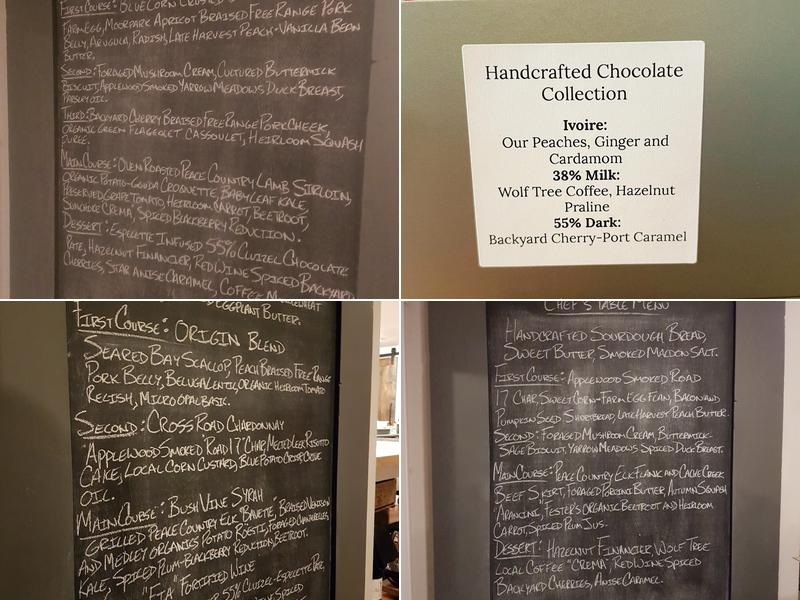 First Course: Blue Corn Crusted
Farm Egg, Moorpark Apricot Braised Free Range Pork
Belly, Arugula, Radish, Late Harvest Peach-Vanilla Bean
Butter.
Second: Foraged Mushroom Cream, Cultured Buttermilk
Biscuit, Applewood Smoked Yarrow Meadows Duck Breast,
Parsley Oil.
Third: Backyard Cherry Braised Free Range Pork Cheek,
Organic Green Flageolet Cassoulet, Heirloom Squash
Puree.
Main Course: Oven Roasted Peace Country Lamb Sirloin,
Organic Potato-Gouda Croquette, Baby Leaf Kale,
Preserved Grape Tomato, Heirloom Carrot, Beetroot,
Sunchoke Crema, Spiced Blackberry Reduction.
Dessert: Espelette Infused 55% Cluizel Chocolate
Pate, Hazelnut Financier, Red Wine Spiced Backyard
Cherries, Star Anise Caramel, Coffee
Handcrafted Chocolate
Collection
Ivoire:
Our Peaches, Ginger and
Cardamom
38% Milk:
Wolf Tree Coffee, Hazelnut
Praline
55% Dark:
Backyard Cherry-Port Caramel
Eggplant Butter.
First Course: Origin Blend
Seared Bay Scallop, Peach Braised Free Range
Pork Belly, Beluga Lentil, Organic Heirloom Tomato
Relish, Micro Opal Basic.
Second: Cross Road Chardonnay
Applewood Smoked "Road 17" Char, Melted Leek Risotto
Cake, Local Corn Custard, Blue Potato Crisp, Chive
Oil.
Main Course: Bush Vine Syrah
Grilled Peace Country Elk "Bavette", Braised Venison
and Medley Organics Potato Roesti, Foraged Chanterelles,
Kale, Spiced Plum-Blackberry Reduction, Beetroot.
Fortified Wine
55% Cluizel-Espelette Pate,
Wine Spiced
Chef's Table Menu
Handcrafted Sourdough Bread,
Sweet Butter, Smoked Maldon Salt.
First Course: Applewood Smoked Road
17 Char, Sweet Corn-Farm Egg Flan, Bacon and
Pumpkin Seed Shortbread, Late Harvest Peach Butter.
Second: Foraged Mushroom Cream, Buttermilk-
Sage Biscuit, Yarrow Meadows Spiced Duck Breast.
Main Course: Peace Country Elk Flank and Cache Creek
Beef Skirt, Foraged Porcini Butter, Autumn Squash
"Arancini", Tester's Organic Beetroot and Heirloom
Carrot, Spiced Plum Jus.
Dessert: Hazelnut Financier, Wolf Tree
Local Coffee "Crema", Red Wine Spiced
Backyard Cherries, Anise Caramel.